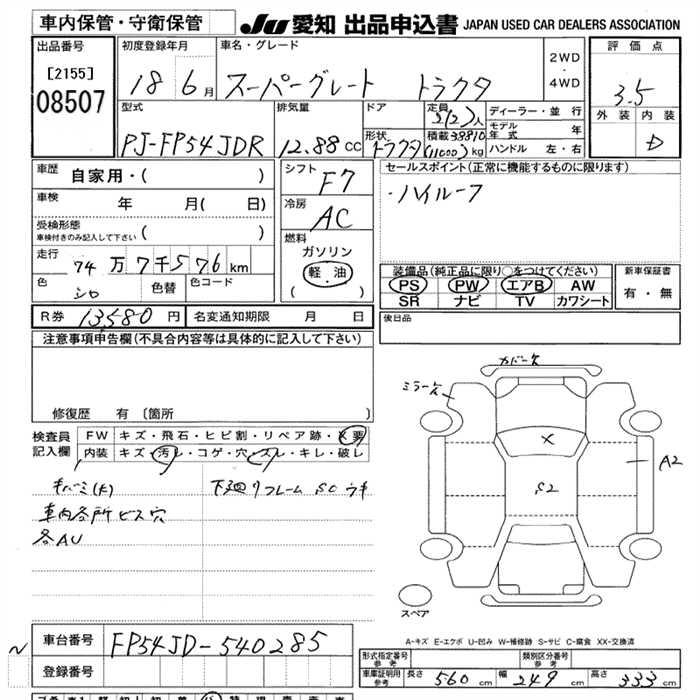 車内保管・守衛保管 JU 愛知 出品申込書 JAPAN USED CAR DEALERS ASSOCIATION
出品番号 初度登録年月 車名・グレード 2WD ・ 4WD 評価点
[2155] 18 6月 スーパーグレート トラクタ 3.5
08507 型式 排気量 ドア 定員 5(2)人 ディーラー・並行 外装 内装
モデル年式 年
PJ-FP54JDR 12.88 CC 形状 トラクタ 積載 (11000)kg ハンドル 左・右 D
車歴 自家用・( ) シフト F7 セールスポイント(正常に機能するものに限ります)
車検 年 月( 日) 冷房 AC ・ハイルーフ
受検形態 車検付きのみ記入して下さい ( ) 燃料
走行 74万7千576km ガソリン 装備品(純正品に限り○をつけてください) 新車保証書
色 シロ 色替 色コード 軽・油 ( ) PS PW エアB AW 有・無
SR ナビ TV カワシート
R券 13580円 名変通知期限 月 日 後日品
注意事項申告欄(不具合内容等は具体的に記入して下さい)
カバーズ
ミラーズ
修復歴 有〔箇所 〕
検査員記入欄 FW キズ・飛石・ヒビ割・リペア跡・X要
内装 キズ・汚レ・コゲ・穴・スレ・キレ・破レ
X
A2
S2
キバミ(大) 下廻りフレーム SC ウキ
車内各所ビス穴
各AU
スペア
A-キズ E-エクボ U-凹み W-補修跡 S-サビ C-腐食 XX-交換済
車台番号 FP54JD-540285
登録番号
形式指定番号 参考 類別区分番号 参考
車庫証明用 参考 長さ 560 cm 幅 249 cm 高さ 333 cm